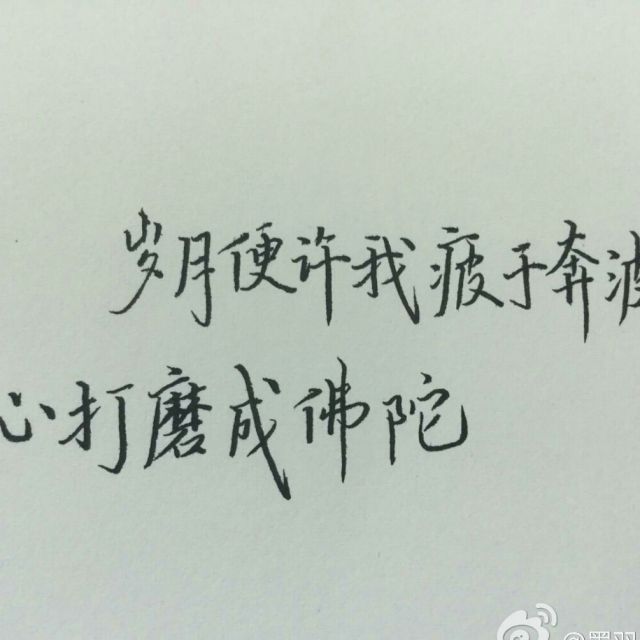 岁月便许我疲于奔波
心打磨成佛陀